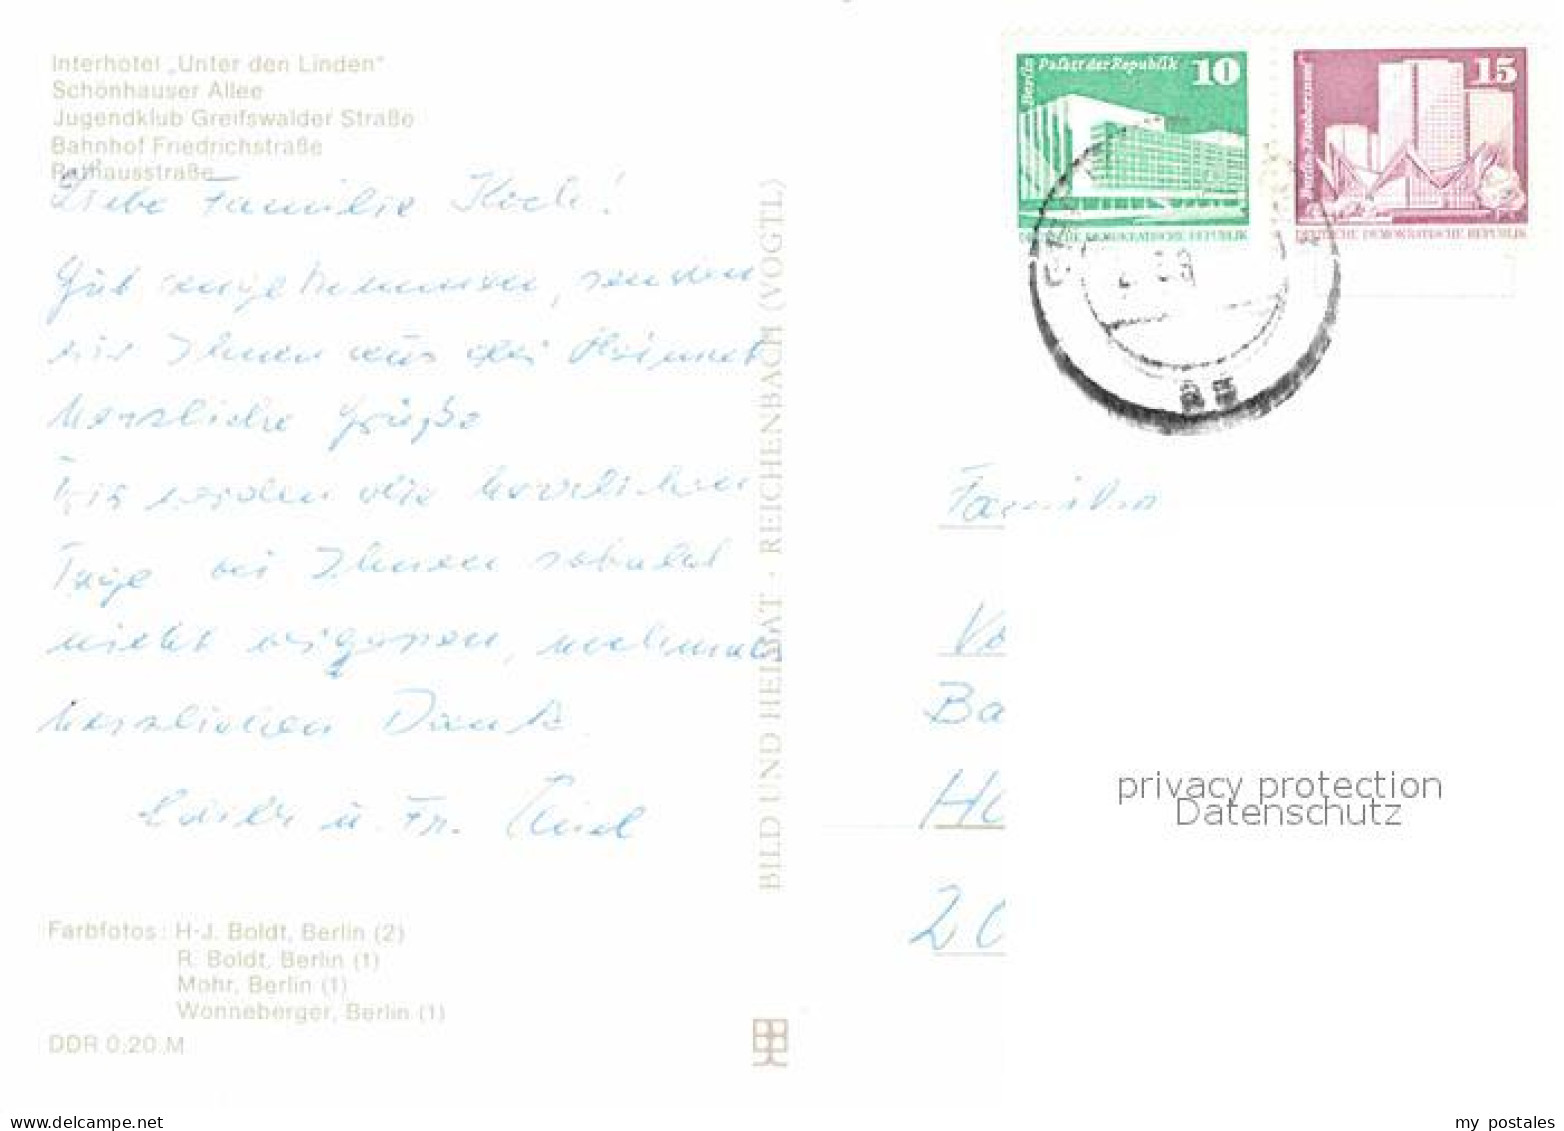 Interhotel „Unter den Linden“
Schönhauser Allee
Jugendklub Greifswalder Straße
Bahnhof Friedrichstraße
Rathausstraße
Liebe Familie Koch!
Gut angekommen, senden
wir Ihnen aus der Heimat
herzliche Grüße
Wir werden die herrlichen
Tage bei Ihnen sobald
nicht vergessen, nochmals
herzlichen Dank.
u. Fr.
Farbfotos: H-J. Boldt, Berlin (2)
R. Boldt, Berlin (1)
Mohr, Berlin (1)
Wonneberger, Berlin (1)
DDR 0,20 M
BILD UND HEIMAT · REICHENBACH (VOGTL)
Berlin Palast der Republik 10
DEUTSCHE DEMOKRATISCHE REPUBLIK
15
DEUTSCHE DEMOKRATISCHE REPUBLIK
Familie
Vo
Ba
Ha
20
privacy protection
Datenschutz
www.oldthing.net
my postales